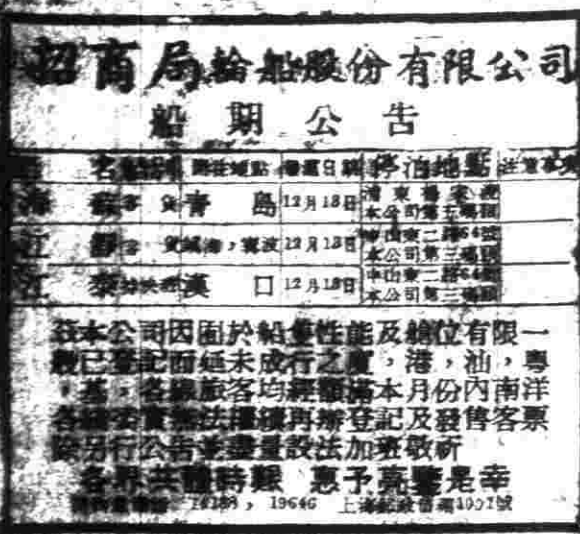 招商局輪船股份有限公司
船期公告
名 船別 開往地點 停泊地點 注意事
海蘇 客貨 青島 12月18日 浦東楊家渡 本公司第五碼頭
江靜 客貨 鎮海,寧波 12月18日 中山東二路64號 本公司第三碼頭
江泰 漢口 12月18日 中山東二路64號 本公司第三碼頭
茲本公司因囿於船隻性能及艙位有限一
般已登記而延未成行之廈,港,汕,粵
,基,各線旅客均經額滿本月份內南洋
各線委實無法繼續再辦登記及發售客票
除另行公告並盡量設法加班敬祈
各界共體時艱 惠予亮鑒是幸
19646 上海